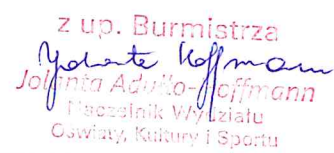 z up. Burmistrza
Jolanta Hoffmann
Jolanta Adullo-Hoffmann
Naczelnik Wydziału
Oświaty, Kultury i Sportu